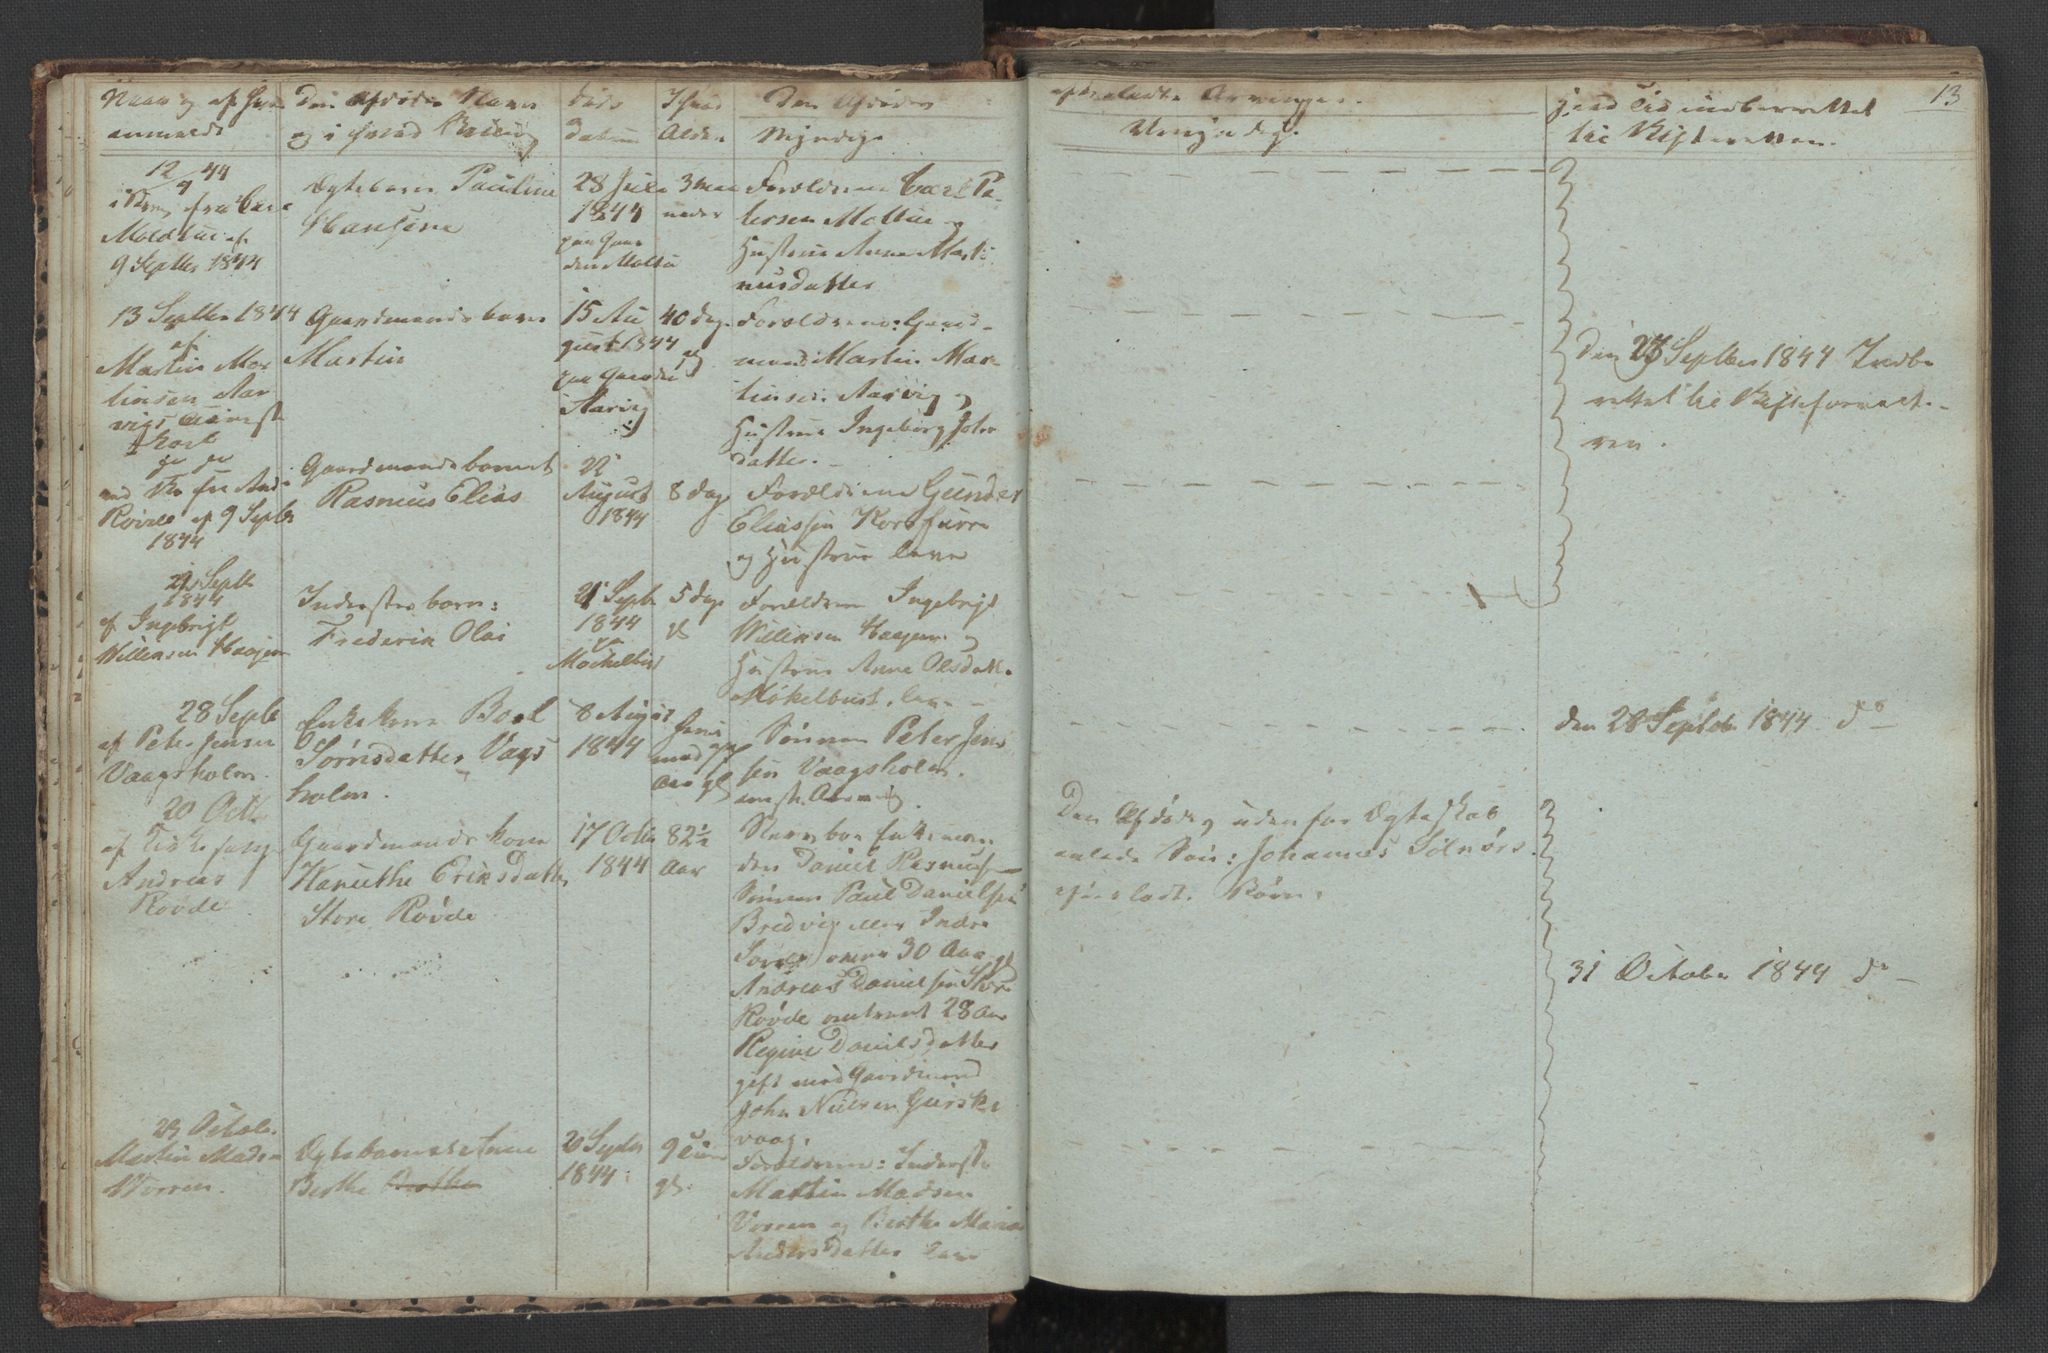 Naar og af hvem
anmeldt
Den Afdødes Navn
og i hvad Stilling
Døds
Datum
Alder
Den Afdødes
Myndige
efterladte Arvinger.
Umyndige.
hvad Tid indberettet
til Skifteretten.
13
12/9 44
i Brev fra Carl
Moldtue af
9 Septbr 1844
Ægtebarn Pauline
Hansine
28 Juli
1844
paa Gaar
den Moltu
3 maa
neder
Forældrene Carl Pe-
tersen Moltue og
Hustrue Anne Marti
nusdatter
13 Septbr 1844
af
Martin Mar
tinsen Aar
vig
Gaardmandsbarn
Martin
15 Au
gust 1844
paa Gaarden
Aarvig
40 dage
gl
Forældrene: Gaard-
mand Martin Mar-
tinsen Aarvig og
Hustrue Ingeborg John
datter.
Den 23 Septbr 1844 Indbe
rettet til Skifteforvalte-
ren.
Røvde af 9 Septbr
1844
Gaardmandsbarnet
Rasmus Elias
22
August
1844
8 dage
Forældrene Gunder
Eliassen Korsfurre
og Hustrue leve
21 Septb
1844
af Ingebrigt
Willumsen Haagen
Inderstebarn:
Frederik Olai
21 Septb
1844
pa
Mochelbust
5 dage
gl
Forældrene Ingebrigt
Willumsen Haagen og
Hustrue Anne Olsdatt.
Møkelbust, leve
28 Septb
af Peter Jensen
Vaagsholm.
Enkekone Boel
Sørensdatter Vags
holm.
8 August
1844
Sønnen Peter Jen
sen Vaagsholm.
den 28 Septbr 1844 do
20 Octb
af
Andreas
Røvde
Gaardmandskone
Karuthe Eriksdatter
Store Røvde
17 Octb
1844
82½
Aar
Enkeman
den Daniel Rasmusen
Sønnen Paul Danielsen
Bredvig eller Indre
over 30 Aar gl
Andreas Danielsen Store
Røvde omtrent 28 Aar
Regine Danielsdatter
gift med Gaardmand
John Nielsen Gurske
vaag.
Den Afdødes udenfor Ægteskab
avlede Søn: Johannes Silnørs
efterladte Børn.
31 October 1844 do
23 October
Martin Madsen
Worren.
Ægtebarnet Anne
Berthe
20 Septbr
1844.
9 Timer
gl.
Forældrene: Inderste
Martin Madsen
Vorren og Berthe Marie
Andersdatter leve